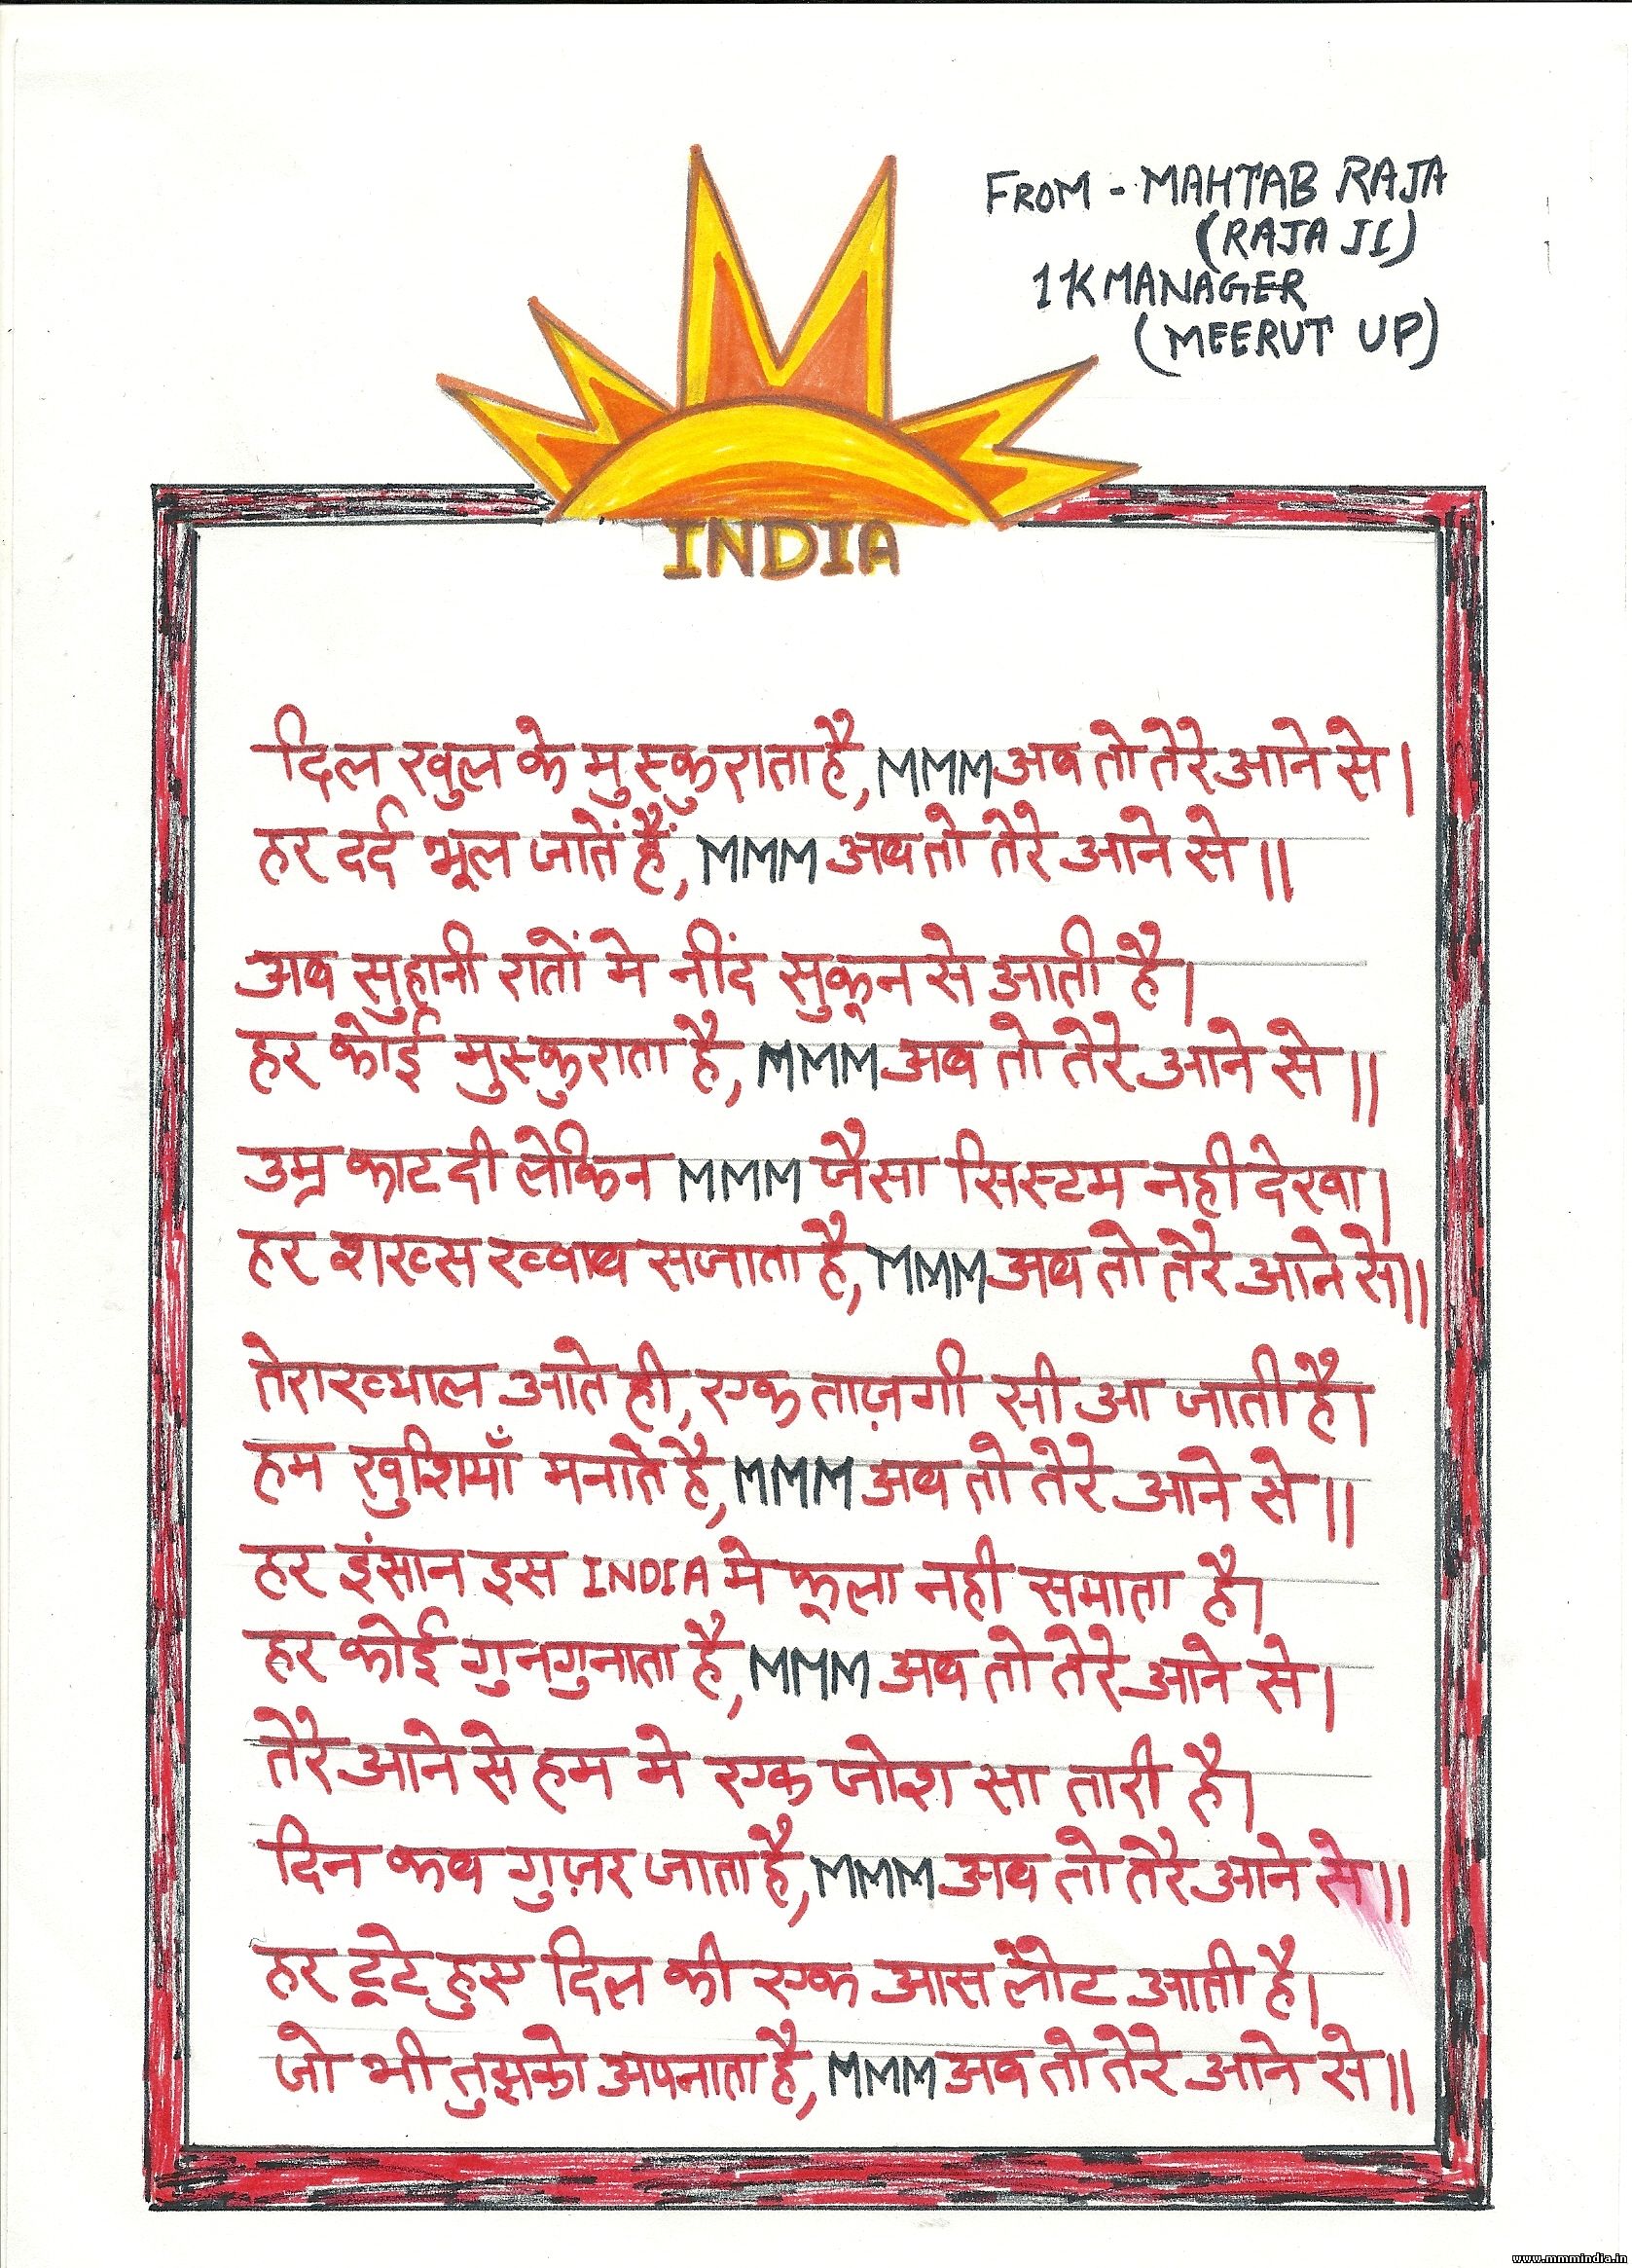 FROM - MAHTAB RAJA
(RAJA JI)
1K MANAGER
(MEERUT UP)
INDIA
दिल खुल के मुस्कुराता है, MMM अब तो तेरे आने से।
हर दर्द भूल जातें हैं, MMM अब तो तेरे आने से॥
अब सुहानी रातों मे नींद सुकून से आती है।
हर कोई मुस्कुराता है, MMM अब तो तेरे आने से॥
उम्र काट दी लेकिन MMM जैसा सिस्टम नही देखा।
हर शख्स ख्वाब सजाता है, MMM अब तो तेरे आने से॥
तेरा ख्याल आते ही, एक ताज़गी सी आ जाती है।
हम खुशियाँ मनाते है, MMM अब तो तेरे आने से॥
हर इंसान इस INDIA मे फूला नही समाता है।
हर कोई गुनगुनाता है, MMM अब तो तेरे आने से।
तेरे आने से हम मे एक जोश सा तारी है।
दिन कब गुज़र जाता है, MMM अब तो तेरे आने से॥
हर टूटे हुए दिल की एक आस लौट आती है।
जो भी तुझको अपनाता है, MMM अब तो तेरे आने से॥
www.mmmindia.in